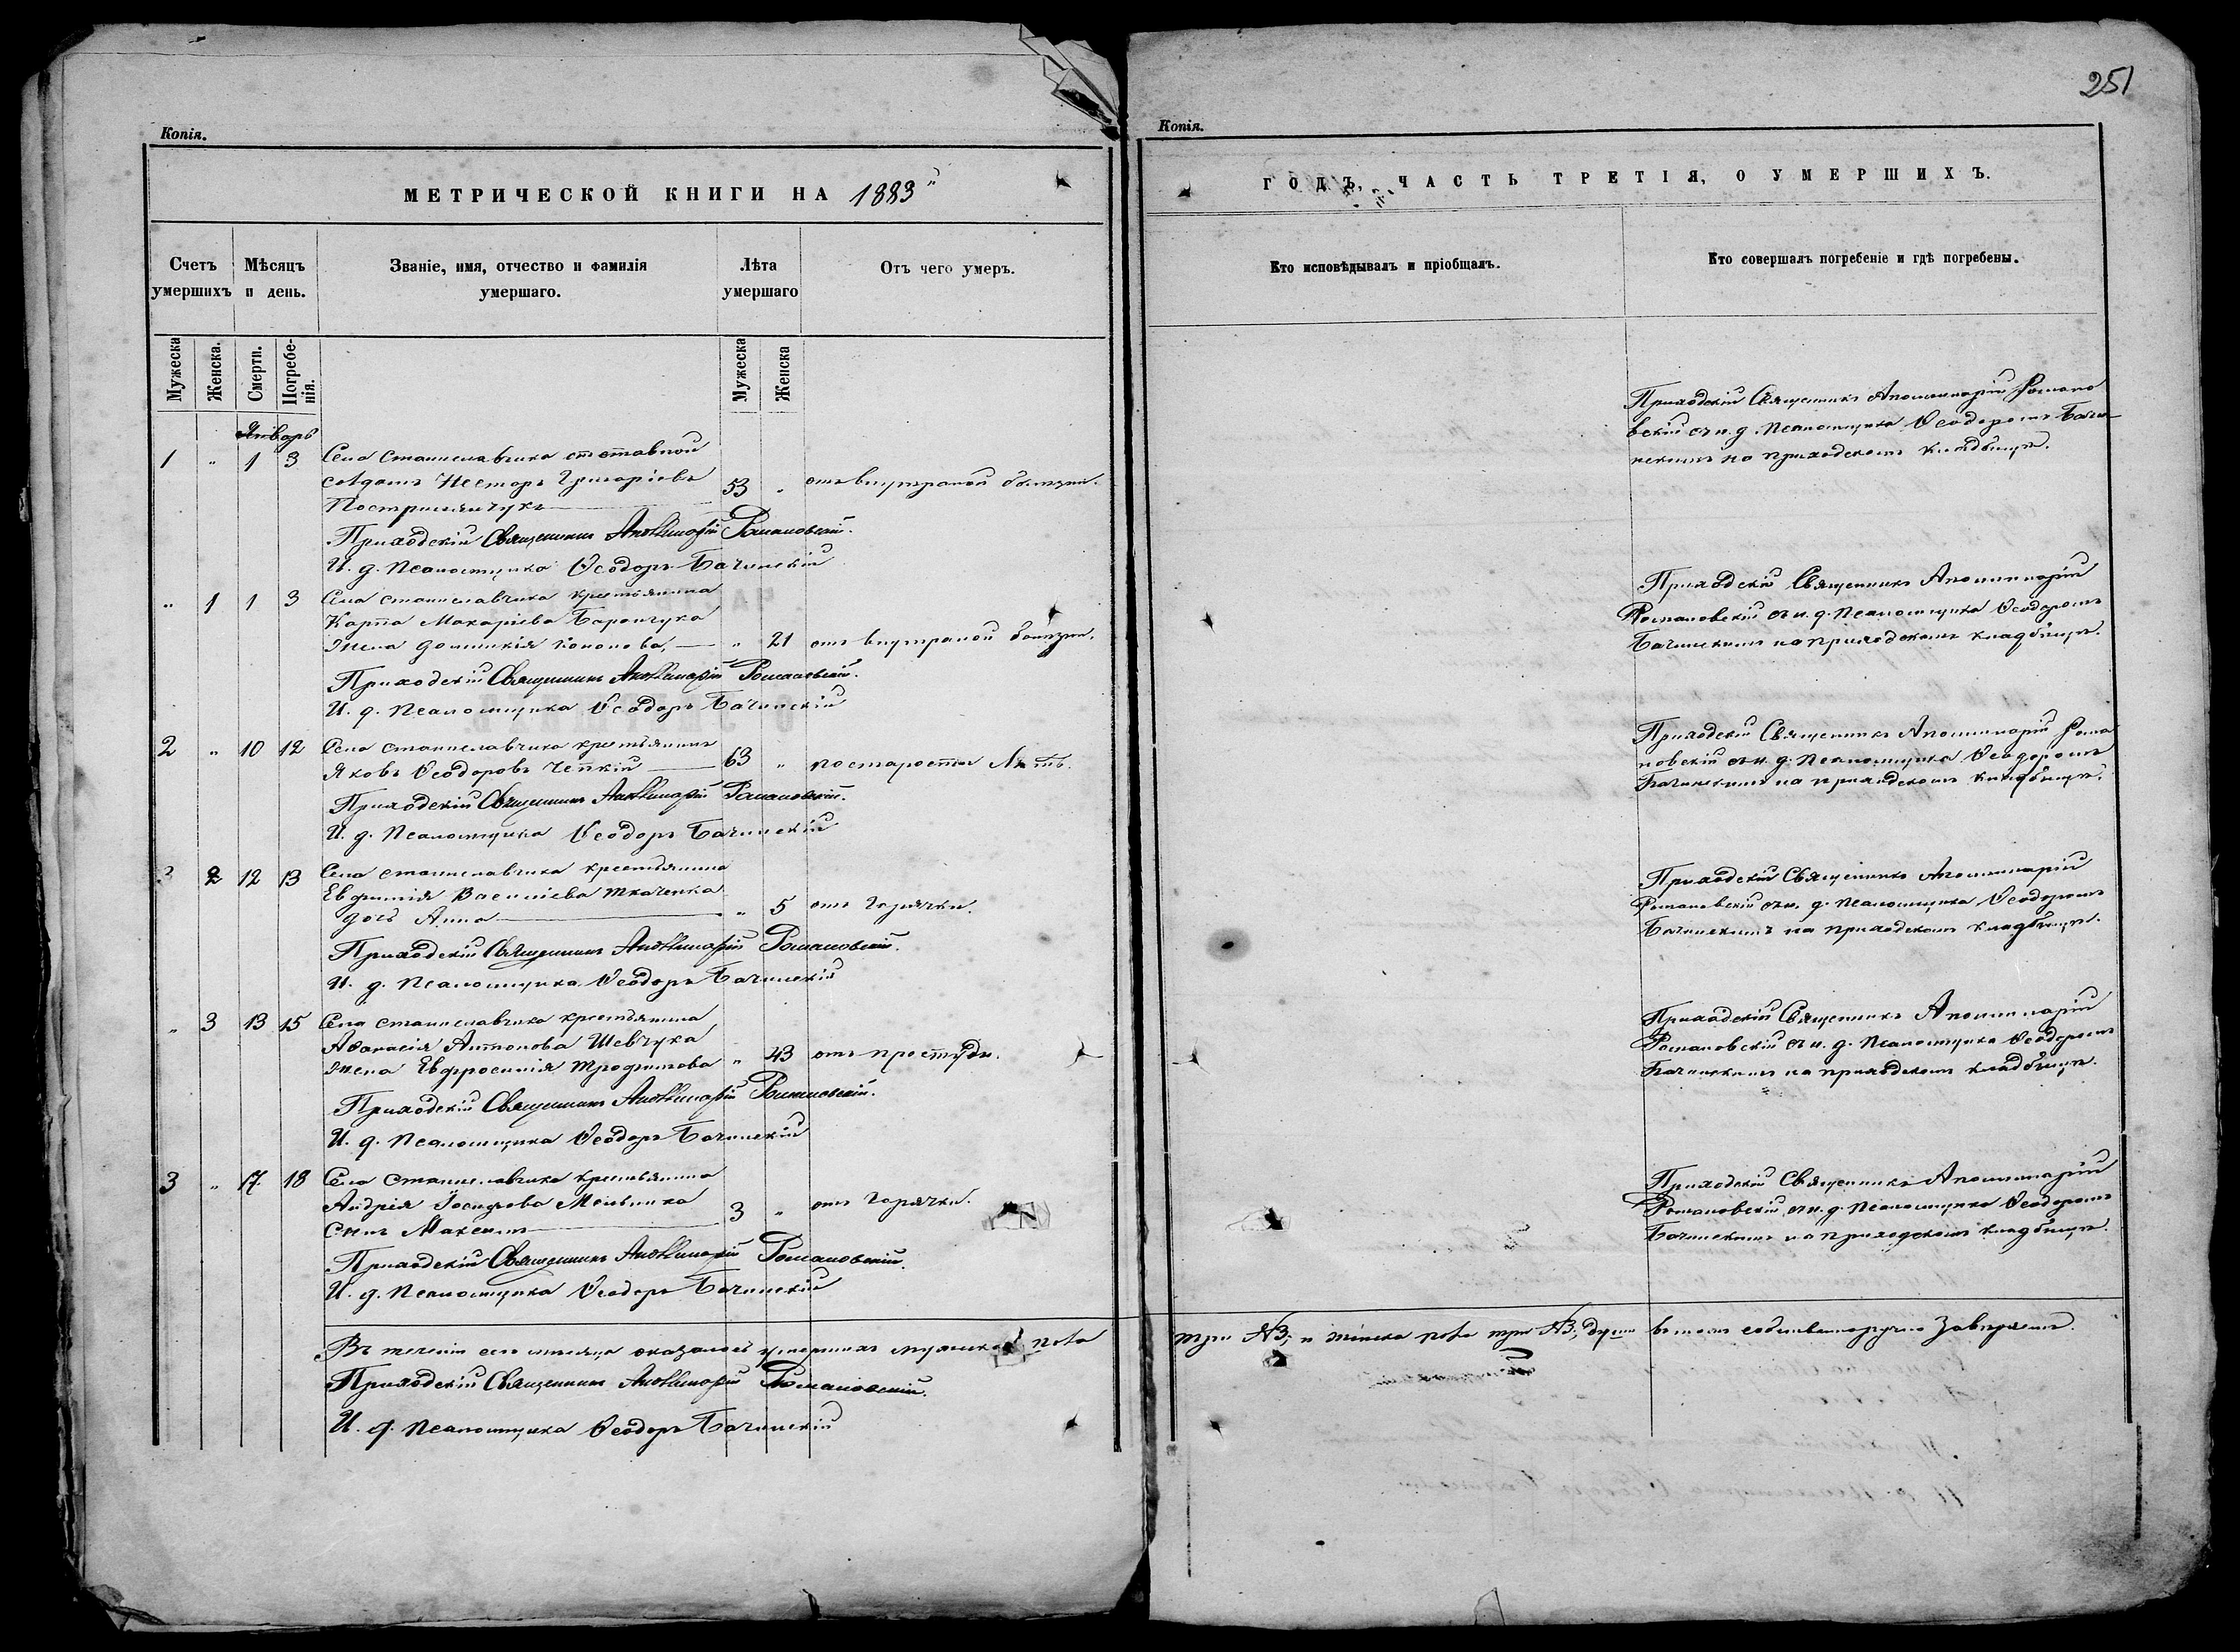 251
Копія.
МЕТРИЧЕСКОЙ КНИГИ НА 1883
Счетъ умершихъ
Мѣсяцъ и день.
Званіе, имя, отчество и фамилія умершаго.
Лѣта умершаго
Отъ чего умеръ.
Мужеска
Женска.
Смерти.
Погребенія.
Мужеска
Женска
Январь
1 " 1 3 Села Станиславчика отставной
солдатъ Несторъ Григоріевъ 53 " отъ внутреной болезни.
Приходскій Священникъ Аполлинарій Романовскій.
И. д. Псаломщика Ѳеодоръ Бачинскій
" 1 1 3 Села Станиславчика крестьянина
Карпа Макаріева Баранчука
жена Домникія Кононова, " 21 отъ внутреной болезни.
Приходскій Священникъ Аполлинарій Романовскій.
И. д. Псаломщика Ѳеодоръ Бачинскій
2 " 10 12 Села Станиславчика крестьянинъ
Яковъ Ѳеодоровъ Чепкій 63 " по старости лѣтъ.
Приходскій Священникъ Аполлинарій Романовскій.
И. д. Псаломщика Ѳеодоръ Бачинскій
2 12 13 Села Станиславчика крестьянина
Евфимія Василіева Ткаченка
дочь Анна " 5 отъ горячки.
Приходскій Священникъ Аполлинарій Романовскій.
И. д. Псаломщика Ѳеодоръ Бачинскій
" 3 13 15 Села Станиславчика крестьянина
Аѳанасія Антонова Шевчука
жена Евфросинія Трофимова " 43 отъ простуды.
Приходскій Священникъ Аполлинарій Романовскій.
И. д. Псаломщика Ѳеодоръ Бачинскій
3 " 17 18 Села Станиславчика крестьянина
Андрія Іосифова Мельника
сынъ Максимъ 3 " отъ горячки.
Приходскій Священникъ Аполлинарій Романовскій.
И. д. Псаломщика Ѳеодоръ Бачинскій
Въ теченіи сего мѣсяца оказалось умершихъ мужеска пола
Приходскій Священникъ Аполлинарій Романовскій.
И. д. Псаломщика Ѳеодоръ Бачинскій
Копія.
ГОДЪ, ЧАСТЬ ТРЕТІЯ, О УМЕРШИХЪ.
Кто исповѣдывалъ и пріобщалъ.
Кто совершалъ погребеніе и гдѣ погребены.
Приходскій Священникъ Аполлинарій Романо
вскій съ и. д. Псаломщика Ѳеодоромъ Бачи-
нскимъ на приходскомъ кладбищѣ.
Приходскій Священникъ Аполлинарій
Романовскій съ и. д. Псаломщика Ѳеодоромъ
Бачинскимъ на приходскомъ кладбищѣ.
Приходскій Священникъ Аполлинарій Рома
новскій съ и. д. Псаломщика Ѳеодоромъ
Бачинскимъ на приходскомъ кладбищѣ.
Приходскій Священникъ Аполлинарій
Романовскій съ и. д. Псаломщика Ѳеодоромъ
Бачинскимъ на приходскомъ кладбищѣ.
Приходскій Священникъ Аполлинарій
Романовскій съ и. д. Псаломщика Ѳеодоромъ
Бачинскимъ на приходскомъ кладбищѣ.
Приходскій Священникъ Аполлинарій
Романовскій съ и. д. Псаломщика Ѳеодоромъ
Бачинскимъ на приходскомъ кладбищѣ.
три №3; и женска пола три №3; души въ томъ собственноручно завѣряемъ